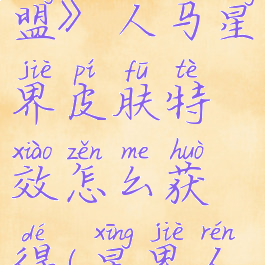 盟》人马星
jiè pí fū tè
界皮肤特
xiào zěn me huò
效怎么获
dé xīng jiè rén
得(星界人